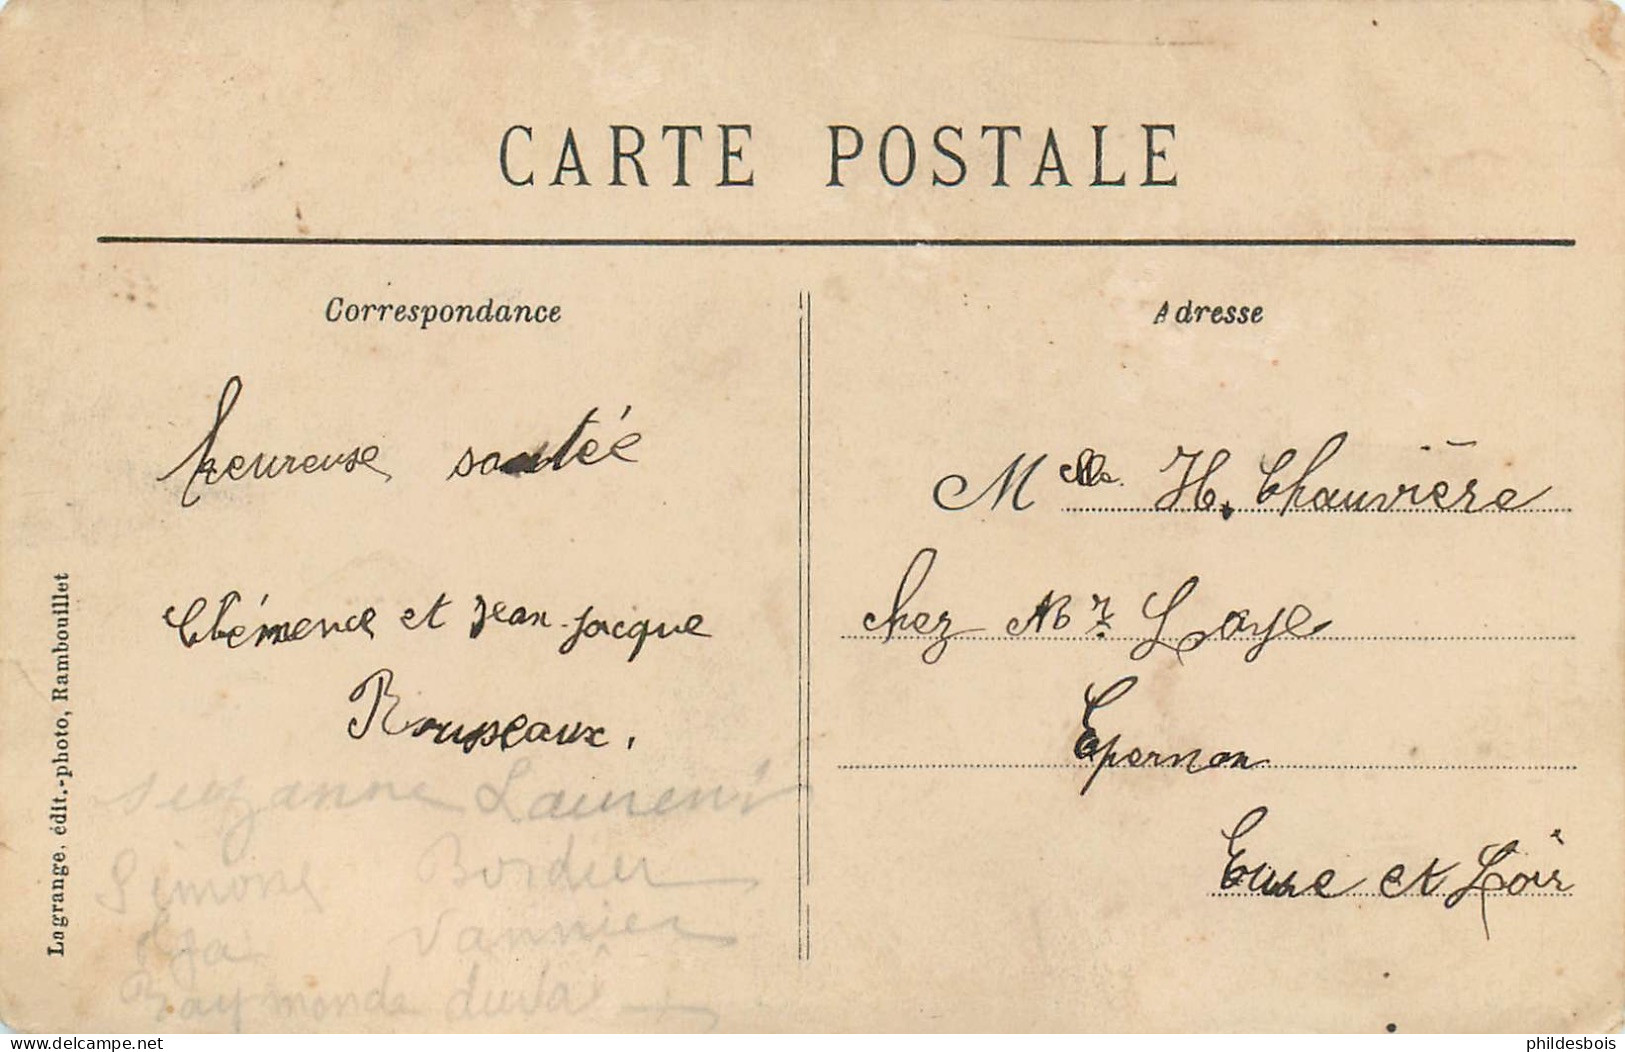 CARTE POSTALE
Correspondance
heureuse santée
Clémence et Jean-Jacque
Rousseaux.
Suzanne Laurent
Simone Bordier
Vannier
Raymonde duval
Lagrange, édit.-photo, Rambouillet
Adresse
Melle H. Chauvière
chez Mr Laye
Epernon
Eure et Loir
phildesbois